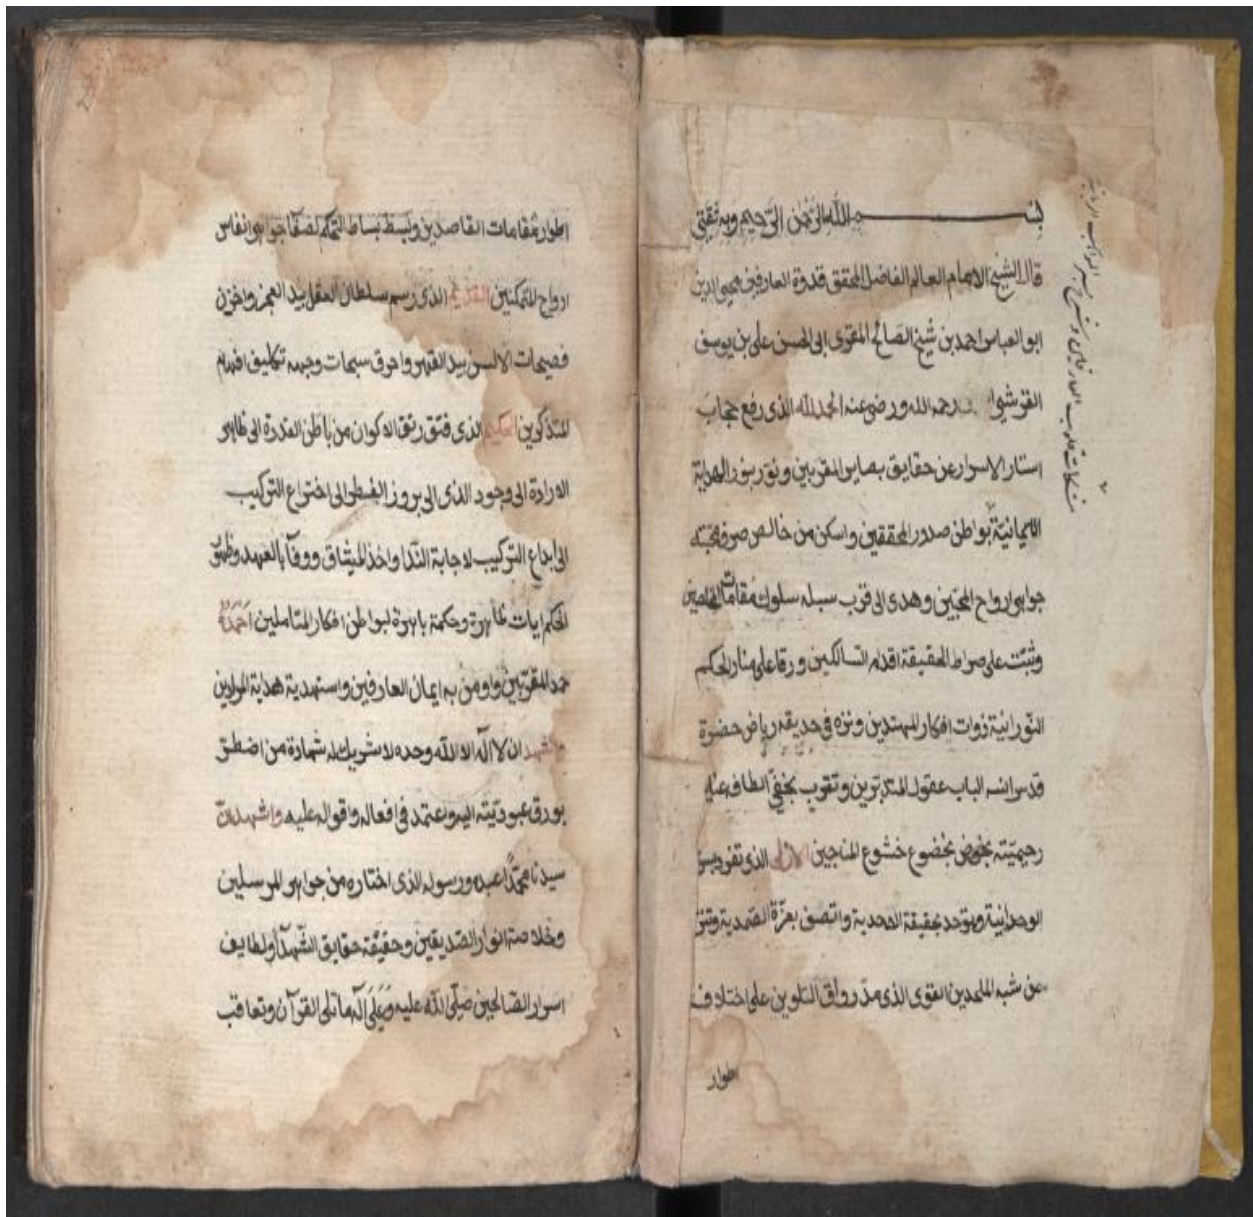 بسم الله الرحمن الرحيم وبه ثقتي
قال الشيخ الامام العالم الفاضل المحقق قدوة العارفين محيي الدين
ابو العباس احمد بن شيخ الصالح المقرى ابى الحسن على بن يوسف
القرشى رحمه الله ورضى عنه الحمد لله الذى رفع حجاب
استار الاسرار عن حقايق بصاير المقربين ونور بنور الهداية
الايمانية بواطن صدور المحققين واسكن من خالص صرف محبته
جواهر ارواح المحبين وهدى الى قرب سبله سلوك مقامات المخلصين
وثبت على صراط الحقيقة اقدام السالكين ورقا على منار الحكم
النورانية ذوات افكار المهتدين ونزه فى حديقه رياض حضرة
قدس انسه الباب عقول المتدبرين وتقرب بخفى الطاف
رحيميته بخضوع خشوع المناجين الازلى الذى تفرد
الوحدانية وتوحد بحقيقة الاحدية واتصف بعزة الصمدية وتنزه
عن شبه الملحدين القوى الذى مد رواق التلوين على اختلاف
اطوار
اطوار مقامات القاصدين وبسط بساط التمكن لصفا جواهر انفاس
ارواح المتمكنين القديم الذى رسم سلطان العقل بيد العجز واخرس
فصيحات الالسن بيد القهر واحرق سبحات وجهه تكاليف افهام
المتذكرين الحكيم الذى فتق رتق الاكوان من باطن القدرة الى ظاهر
الارادة الى وجود الذى الى بروز الفيطر الى اختراع التركيب
الى ابداع التركيب لاجابة الندا واخذ الميثاق ووفآ بالعهد
الحكم ايات ظاهرة وحكمة باهرة لبواطن افكار المتاملين احمده
حمد المقربين واومن به ايمان العارفين واستهديه هداية المرادين
واشهد ان لا اله الا الله وحده لا شريك له شهادة من
بورق عبوديته اليه وعتمد فى افعاله واقواله عليه واشهد ان
سيدنا محمدا عبده ورسوله الذى اختاره من جواهر المرسلين
وخلاصة انوار الصديقين وحقيقة حقايق الشهدآ ولطايف
اسرار الصالحين صلى الله عليه وعلى آله ما تلى القرآن وتعاقب